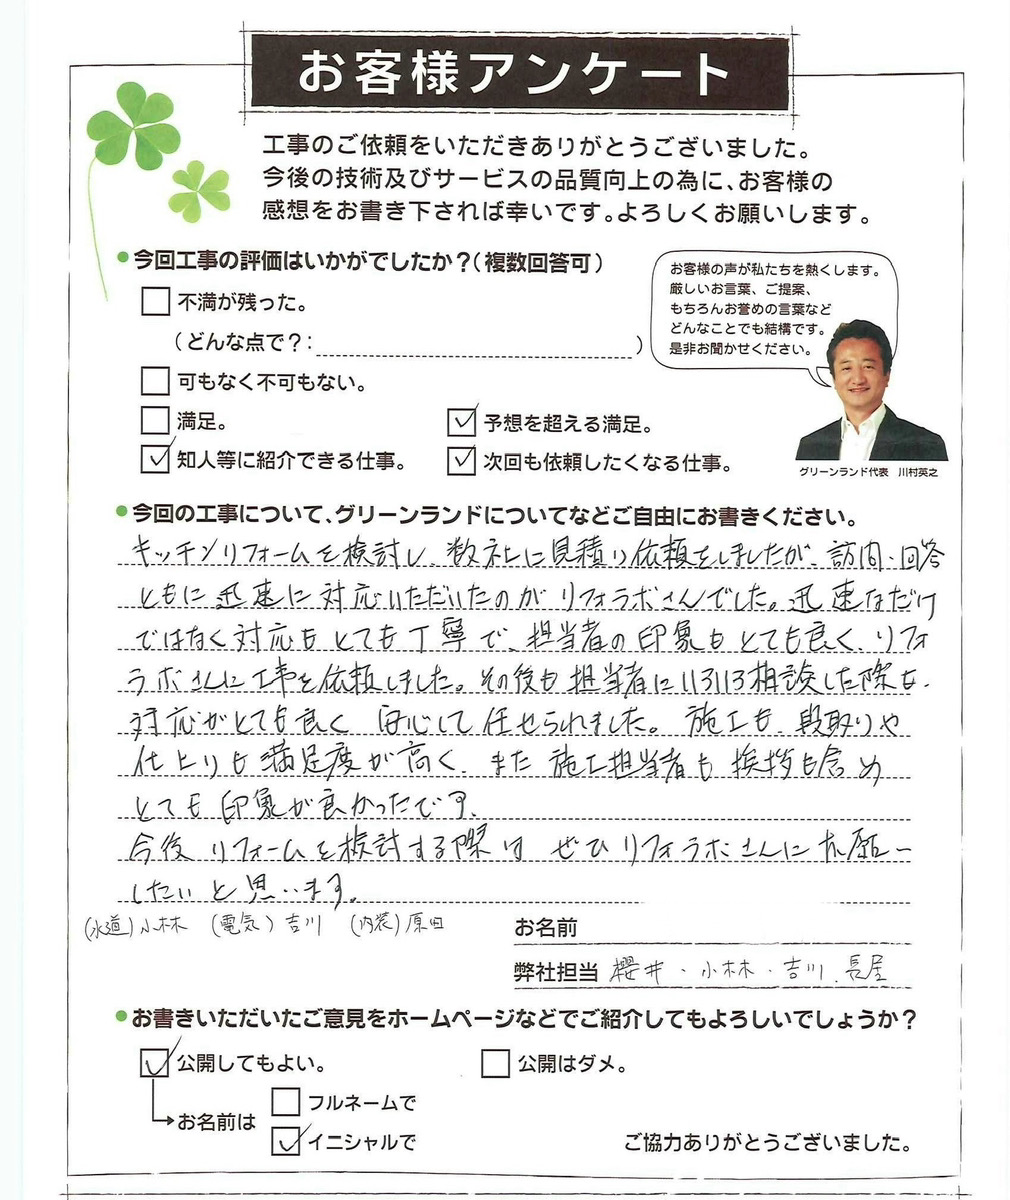 お客様アンケート
工事のご依頼をいただきありがとうございました。
今後の技術及びサービスの品質向上の為に、お客様の
感想をお書き下されば幸いです。よろしくお願いします。
●今回工事の評価はいかがでしたか?(複数回答可)
不満が残った。
(どんな点で?:　)
可もなく不可もない。
満足。
予想を超える満足。
知人等に紹介できる仕事。
次回も依頼したくなる仕事。
お客様の声が私たちを熱くします。
厳しいお言葉、ご提案、
もちろんお誉めの言葉など
どんなことでも結構です。
是非お聞かせください。
グリーンランド代表　川村英之
●今回の工事について、グリーンランドについてなどご自由にお書きください。
キッチンリフォームを検討し、数社に見積り依頼をしましたが、訪問・回答
ともに迅速に対応いただいたのがリフォラボさんでした。迅速なだけ
ではなく対応もとても丁寧で、担当者の印象もとても良く、リフォ
ラボさんに工事を依頼しました。その後も担当者にいろいろ相談した際も、
対応がとても良く安心して任せられました。施工も、段取りや
仕上りも満足度が高く、また施工担当者も挨拶も含め
とても印象が良かったです。
今後リフォームを検討する際はぜひリフォラボさんにお願い
したいと思います。
(水道)小林　(電気)吉川　(内装)原田
お名前
弊社担当　櫻井・小林・吉川、長屋
●お書きいただいたご意見をホームページなどでご紹介してもよろしいでしょうか?
公開してもよい。
公開はダメ。
お名前は
フルネームで
イニシャルで
ご協力ありがとうございました。